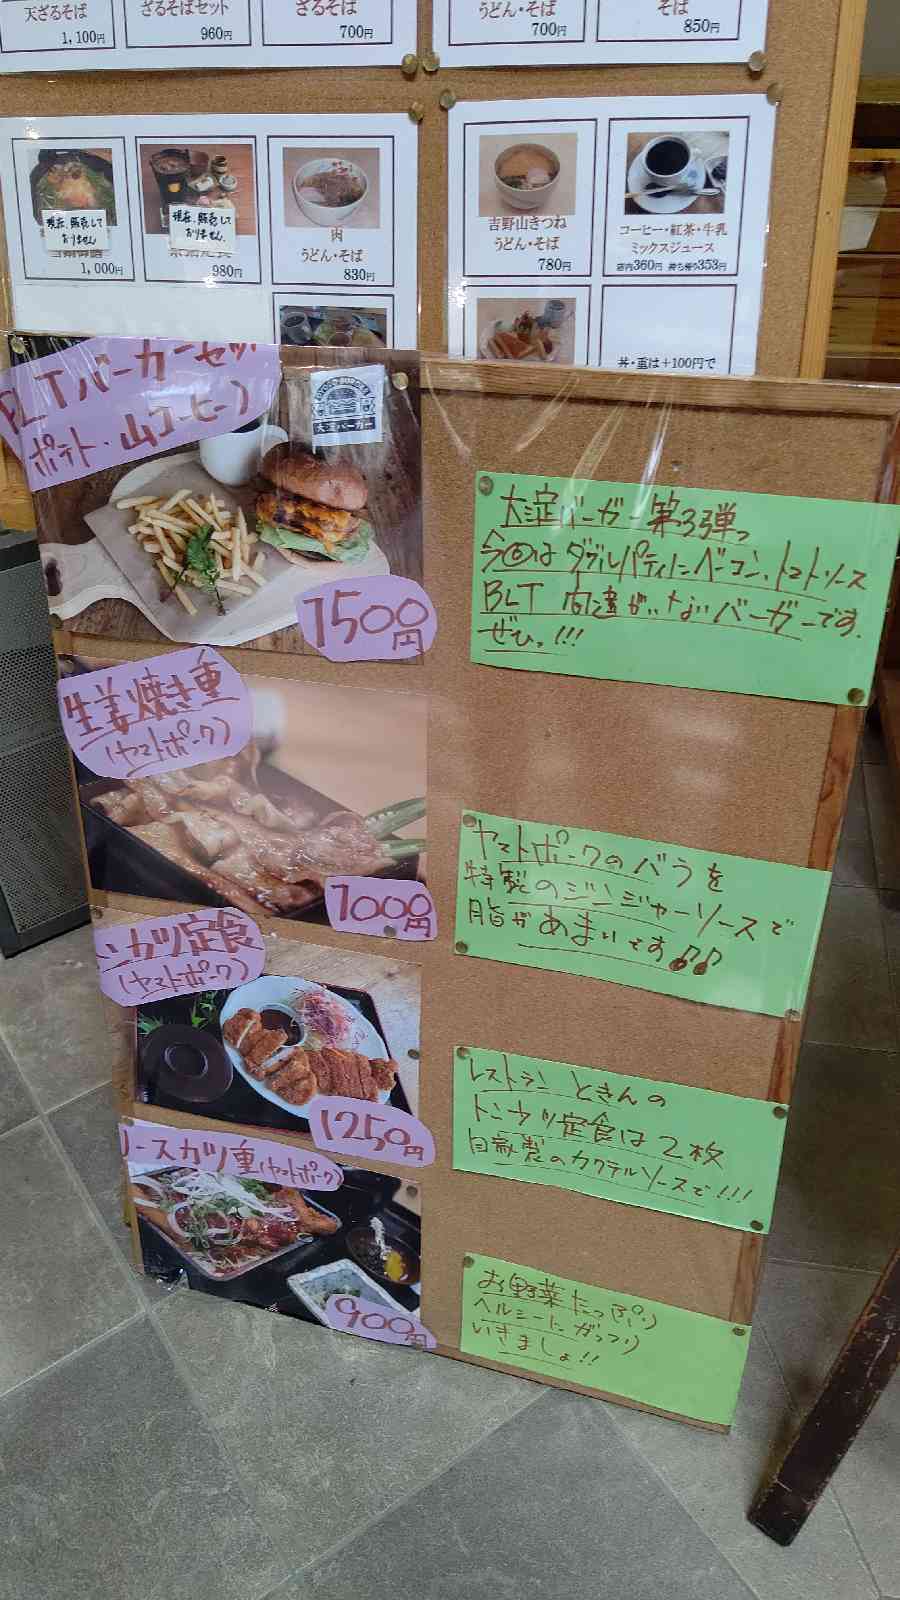 天ざるそば
1,100円
ざるそばセット
960円
ざるそば
700円
うどん・そば
700円
そば
850円
現在、販売して
おりません
1,000円
現在、販売して
おりません
980円
肉
うどん・そば
830円
吉野山きつね
うどん・そば
780円
コーヒー・紅茶・牛乳
ミックスジュース
店内360円 持ち帰り353円
丼・重は+100円で
BLTバーガーセット
ポテト・山コーヒー)
大淀バーガー
1500円
大淀バーガー第3弾っ
今回はダブルパティにベーコン、トマトソース
BLT 間違いないバーガーです。
ぜひっ!!!
生姜焼き重
(ヤマトポーク)
1000円
ヤマトポークのバラを
特製のジンジャーソースで
脂があまいです♪♪
ンカツ定食
(ヤマトポーク)
1250円
レストランときんの
トンカツ定食は2枚
自家製のカクテルソースで!!!
ソースカツ重(ヤマトポーク)
900円
お野菜たっぷり
ヘルシーにガッツリ
いきましょ!!